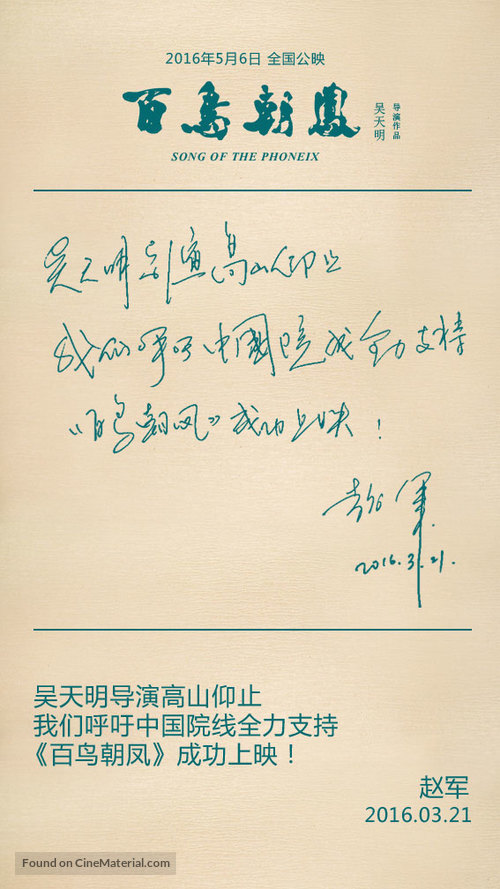 2016年5月6日 全国公映
百鳥朝鳳
吴天明
导演作品
SONG OF THE PHONEIX
吴天明导演高山仰止
我们呼吁中國院线全力支持
《百鸟朝凤》成功上映！
赵军
2016.3.21.
吴天明导演高山仰止
我们呼吁中国院线全力支持
《百鸟朝凤》成功上映！
赵军
2016.03.21
Found on CineMaterial.com